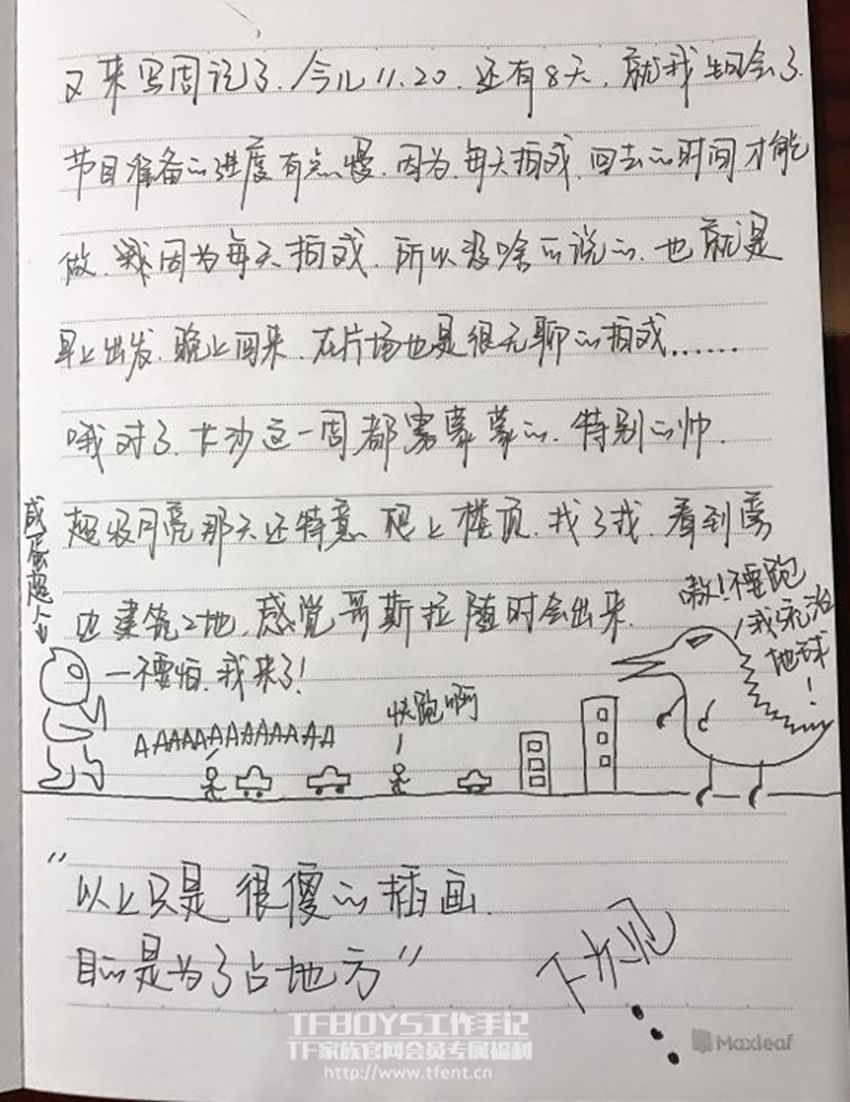 又来写周记了.今儿11.20.还有8天.就我生日会了.
节目准备的进度有点慢.因为.每天拍戏.回去的时间才能
做.我因为每天拍戏.所以没啥可说的.也就是
早上出发.晚上回来.在片场也是很无聊的拍戏......
哦对了.长沙这一周都雾蒙蒙的.特别的帅.
超级月亮那天还特意爬上楼顶.找了找.看到雾
边建筑工地.感觉哥斯拉随时会出来.
咸蛋超人
不要怕.我来了!
AAAAAAAAAAAAA
快跑啊
嗷!不要跑
我统治
地球!
"以上只是很傻的插画.
目的是为了占地方"
下次见
TFBOYS工作手记
TF家族官网会员专属福利
http://www.tfent.cn
Maxleaf